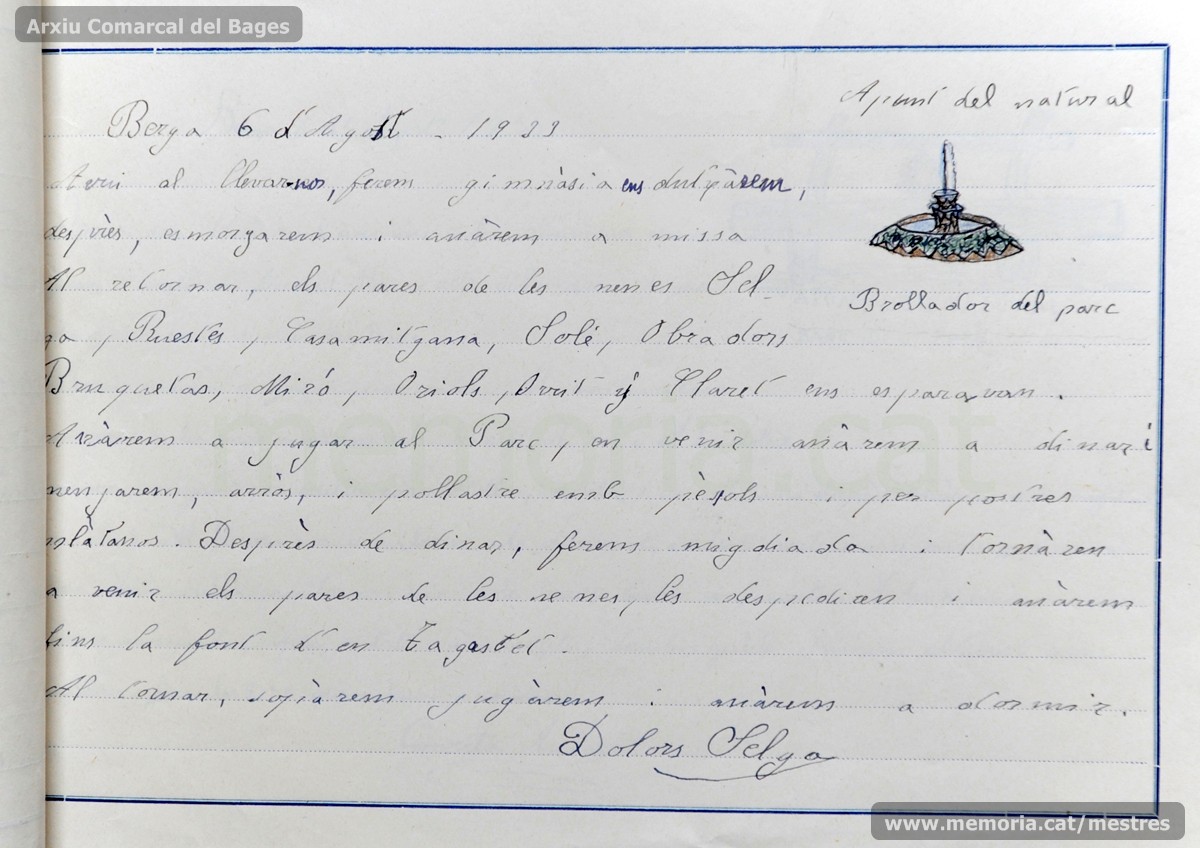 Arxiu Comarcal del Bages
Apunt del natural
Berga 6 d'Agost - 1933
Avui al llevar-nos, ferem gimnàsia ens dutxàrem,
desprès, esmorzarem i anàrem a missa
Al retornar, els pares de les nenes Sel-
Brollador del parc
ga, Ruestes, Casamitjana, Solé, Obradors
Bruguetas, Miró, Oriols, Orrit y Claret ens esparavan.
Anàrem a jugar al Parc, en venir anàrem a dinar i
menjarem, arròs, i pollastre emb pèsols i per postres
plàtanos. Desprès de dinar, ferem migdiada i tornàren
a venir els pares de les nenes, les despediren i anàrem
fins la font d'en Tagastet.
Al tornar, sopàrem jugàrem i anàrem a dormir.
Dolors Selga
memoria.cat
www.memoria.cat/mestres